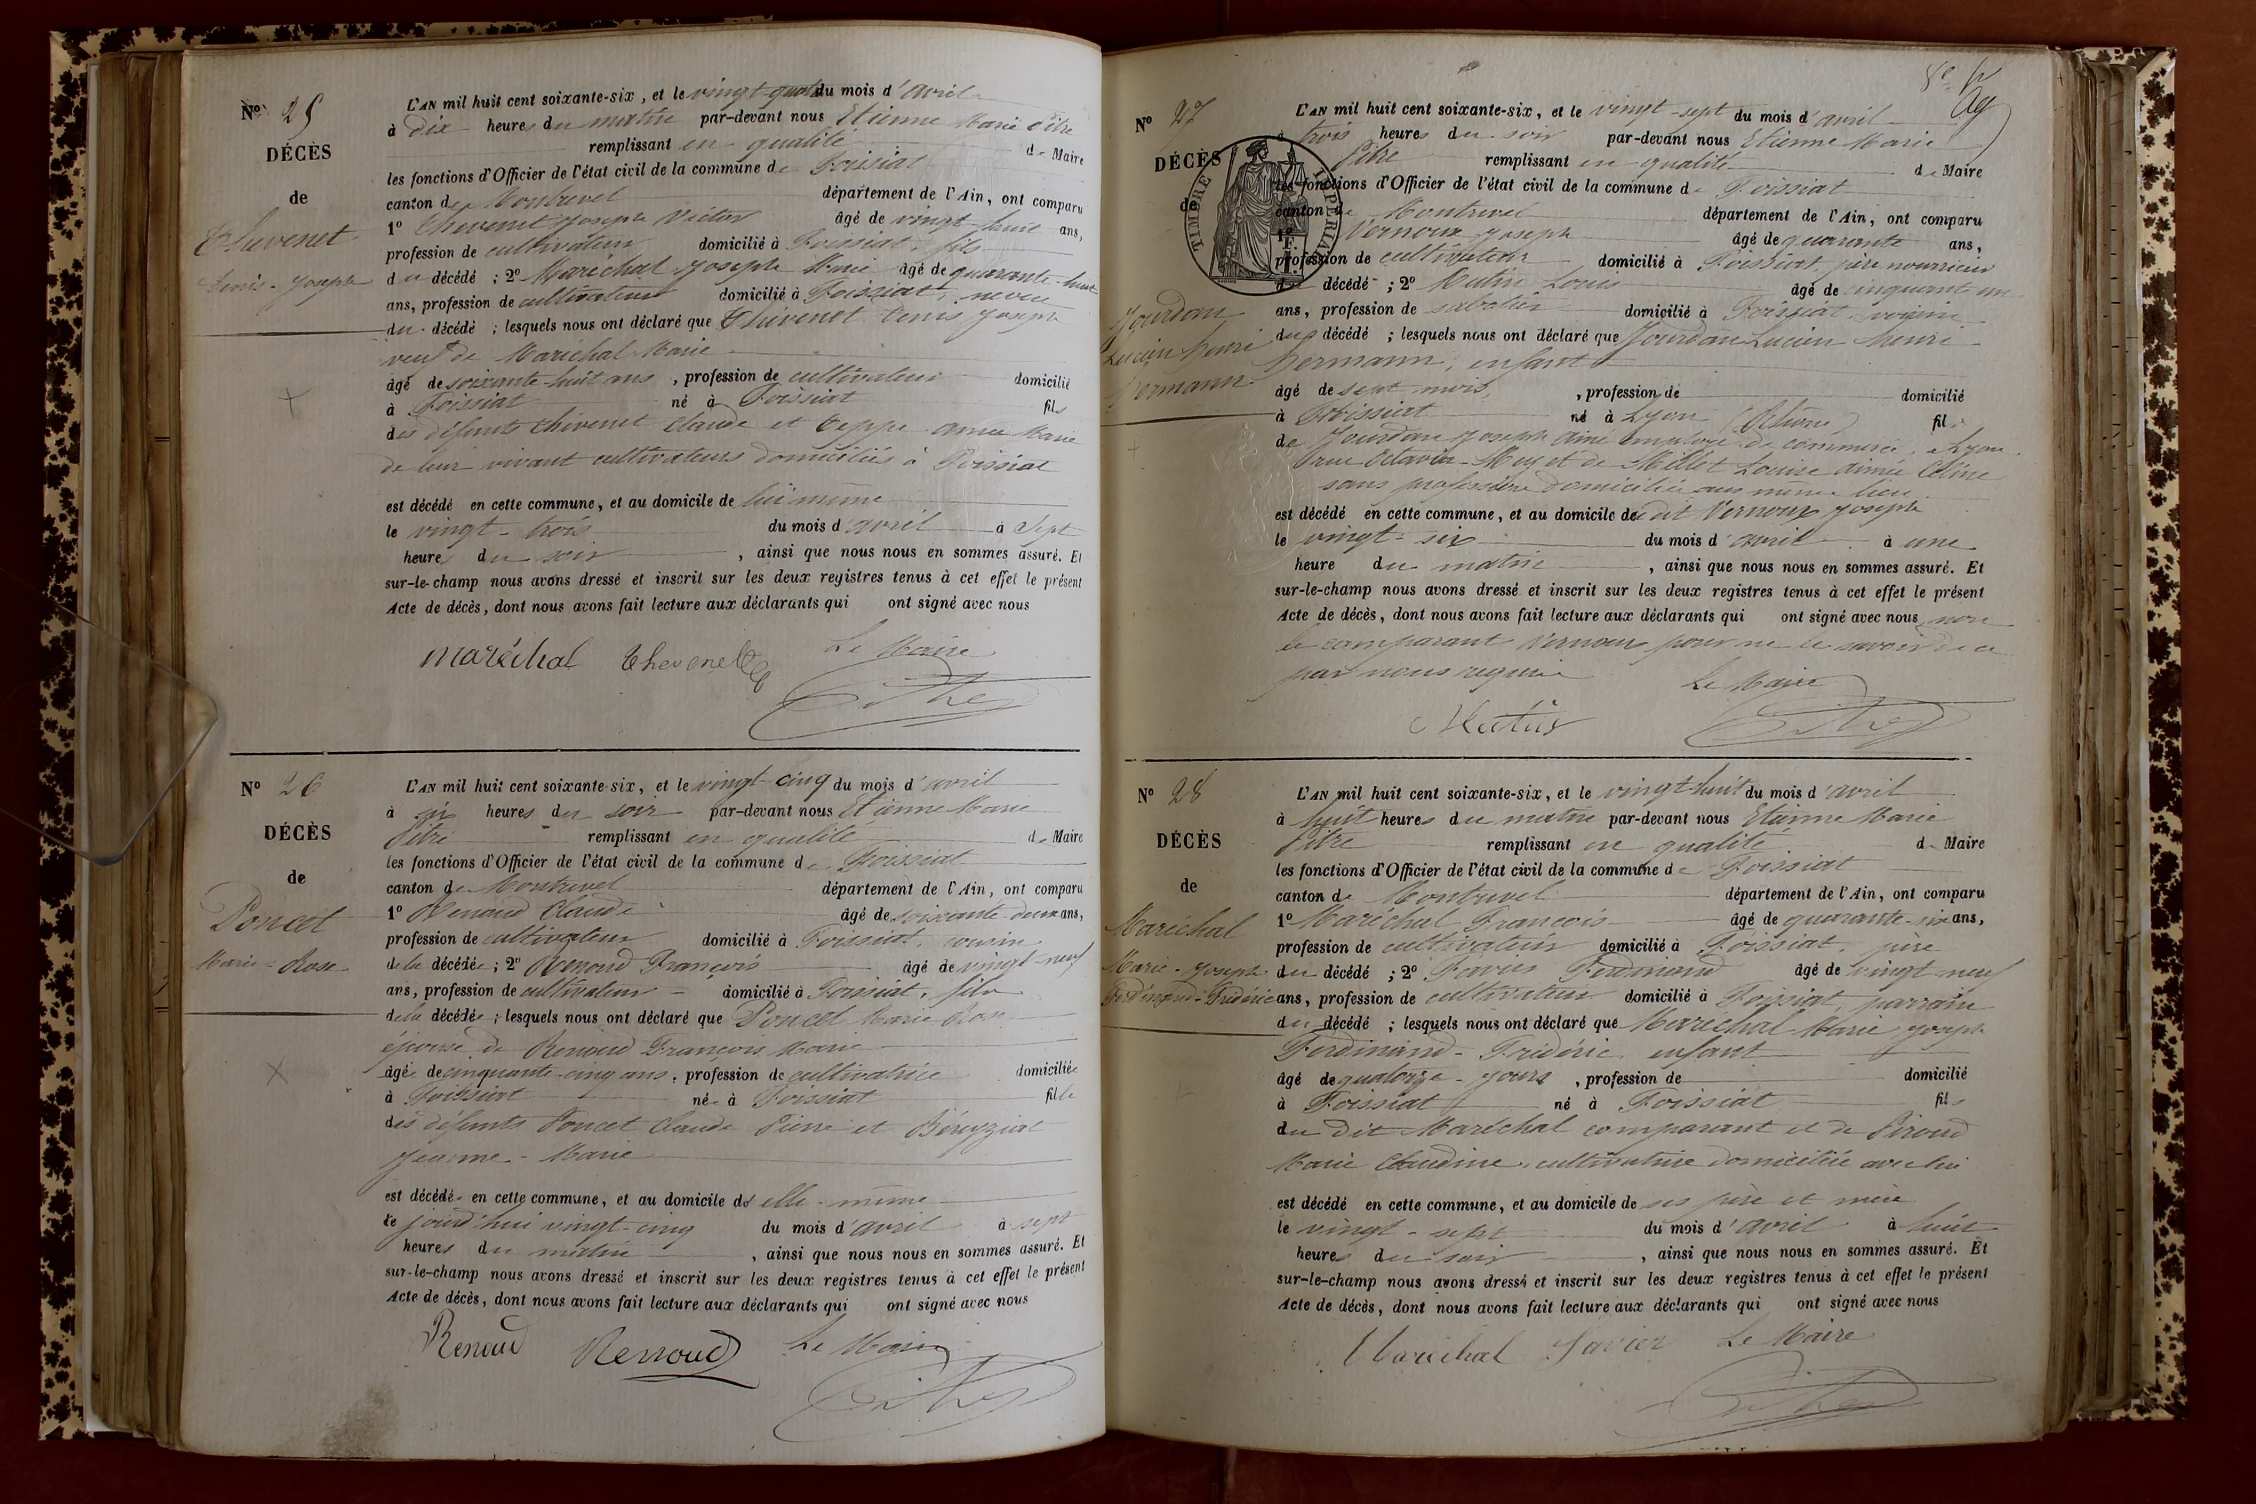 N° 25
DÉCÈS
de
Thevenet
Denis-Joseph
L'AN mil huit cent soixante-six, et le vingt-quatre du mois d'avril
à dix heures du matin par-devant nous Etienne Marie Pitre
remplissant en qualité de Maire
les fonctions d'Officier de l'état civil de la commune de Foissiat
canton de Montrevel département de l'Ain, ont comparu
1° Thevenet Joseph Victor âgé de vingt huit ans,
profession de cultivateur domicilié à Foissiat, fils
du décédé ; 2° Maréchal Joseph Marie âgé de quarante-huit
ans, profession de cultivateur domicilié à Foissiat, neveu
du décédé ; lesquels nous ont déclaré que Thévenet Denis Joseph
veuf de Maréchal Marie
âgé de soixante-huit ans, profession de cultivateur domicilié
à Foissiat né à Foissiat fils
des défunts Thévenet Claude et Teppe Marie
de leur vivant cultivateurs domiciliés à Foissiat
est décédé en cette commune, et au domicile de lui même
le vingt-trois du mois d'avril à sept
heures du soir, ainsi que nous nous en sommes assuré. Et
sur-le-champ nous avons dressé et inscrit sur les deux registres tenus à cet effet le présent
Acte de décès, dont nous avons fait lecture aux déclarants qui ont signé avec nous
Maréchal Thevenet Le Maire
Pitre
N° 26
DÉCÈS
de
Poncet
Marie-Rose
L'AN mil huit cent soixante-six, et le vingt-cinq du mois d'avril
à six heures du soir par-devant nous Etienne Marie
Pitre remplissant en qualité de Maire
les fonctions d'Officier de l'état civil de la commune de Foissiat
canton de Montrevel département de l'Ain, ont comparu
1° Renoud Claude âgé de soixante-deux ans,
profession de cultivateur domicilié à Foissiat, cousin
de la décédée; 2° Renoud François âgé de vingt-neuf
ans, profession de cultivateur domicilié à Foissiat, fils
de la décédée; lesquels nous ont déclaré que Poncet Marie Rose
épouse de Renoud François Marie
âgée de cinquante-cinq ans, profession de cultivatrice domiciliée
à Foissiat née à Foissiat fille
des défunts Poncet Claude Pierre et Béreyziat
Jeanne-Marie
est décédée en cette commune, et au domicile de elle-même
le jourd'hui vingt-cinq du mois d'avril à sept
heures du matin, ainsi que nous nous en sommes assuré. Et
sur-le-champ nous avons dressé et inscrit sur les deux registres tenus à cet effet le présent
Acte de décès, dont nous avons fait lecture aux déclarants qui ont signé avec nous
Renoud Renoud Le Maire
Pitre
N° 27
DÉCÈS
de
Jourdan
Lucien Henri
Hermann
TIMBRE IMPERIAL
L'AN mil huit cent soixante-six, et le vingt-sept du mois d'avril
à trois heures du soir par-devant nous Etienne Marie
Pitre remplissant en qualité de Maire
les fonctions d'Officier de l'état civil de la commune de Foissiat
canton de Montrevel département de l'Ain, ont comparu
1° Vernoux Joseph âgé de quarante ans,
profession de cultivateur domicilié à Foissiat, père nourricier
du décédé ; 2° Mutin Louis âgé de cinquante un
ans, profession de sabotier domicilié à Foissiat, voisin
du décédé ; lesquels nous ont déclaré que Jourdan Lucien Henri
Hermann, enfant
âgé de sept mois, profession de domicilié
à Foissiat né à Lyon (Rhône) fils
de Jourdan Joseph aimé employé de commerce, à Lyon
rue Octavio-Mey et de Millet Louise aimée Céline
sans profession domiciliée au même lieu
est décédé en cette commune, et au domicile de dit Vernoux Joseph
le vingt-six du mois d'avril à une
heure du matin, ainsi que nous nous en sommes assuré. Et
sur-le-champ nous avons dressé et inscrit sur les deux registres tenus à cet effet le présent
Acte de décès, dont nous avons fait lecture aux déclarants qui ont signé avec nous non
le comparant Vernoux pour ne le savoir de ce
par nous requis
Le Maire
Mutin Pitre
N° 28
DÉCÈS
de
Maréchal
Marie-Joseph
Ferdinand-Frédéric
L'AN mil huit cent soixante-six, et le vingt-huit du mois d'avril
à huit heures du matin par-devant nous Etienne Marie
Pitre remplissant en qualité de Maire
les fonctions d'Officier de l'état civil de la commune de Foissiat
canton de Montrevel département de l'Ain, ont comparu
1° Maréchal François âgé de quarante-six ans,
profession de cultivateur domicilié à Foissiat, père
du décédé ; 2° Favier Ferdinand âgé de vingt neuf
ans, profession de cultivateur domicilié à Foissiat, parrain
du décédé ; lesquels nous ont déclaré que Maréchal Marie Joseph
Ferdinand-Frédéric enfant
âgé de quatorze-jours, profession de domicilié
à Foissiat né à Foissiat fils
du dit Maréchal comparant et de Piroud
Marie Claudine, cultivatrice domiciliée avec lui
est décédé en cette commune, et au domicile de ses père et mère
le vingt-sept du mois d'avril à huit
heures du soir, ainsi que nous nous en sommes assuré. Et
sur-le-champ nous avons dressé et inscrit sur les deux registres tenus à cet effet le présent
Acte de décès, dont nous avons fait lecture aux déclarants qui ont signé avec nous
Maréchal Favier Le Maire
Pitre